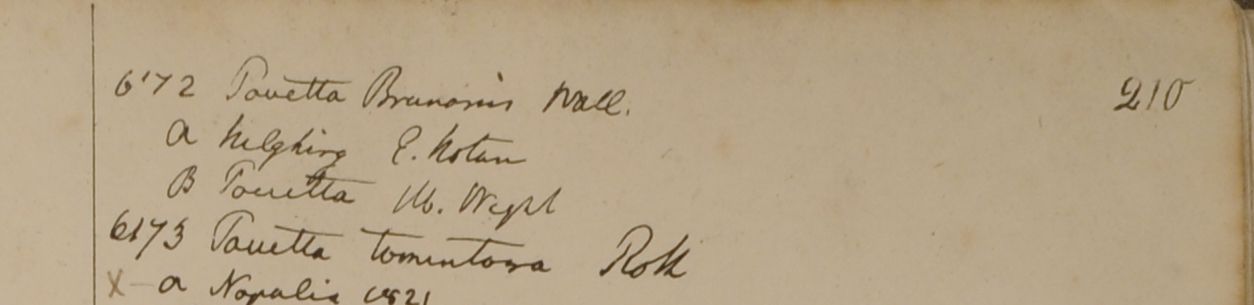 6172 Pavetta Brunonis Wall. 210
a Nilghiry E. Noton
B Pavetta Hb. Wight
6173 Pavetta tomentosa Roth
X a Napalia 1821